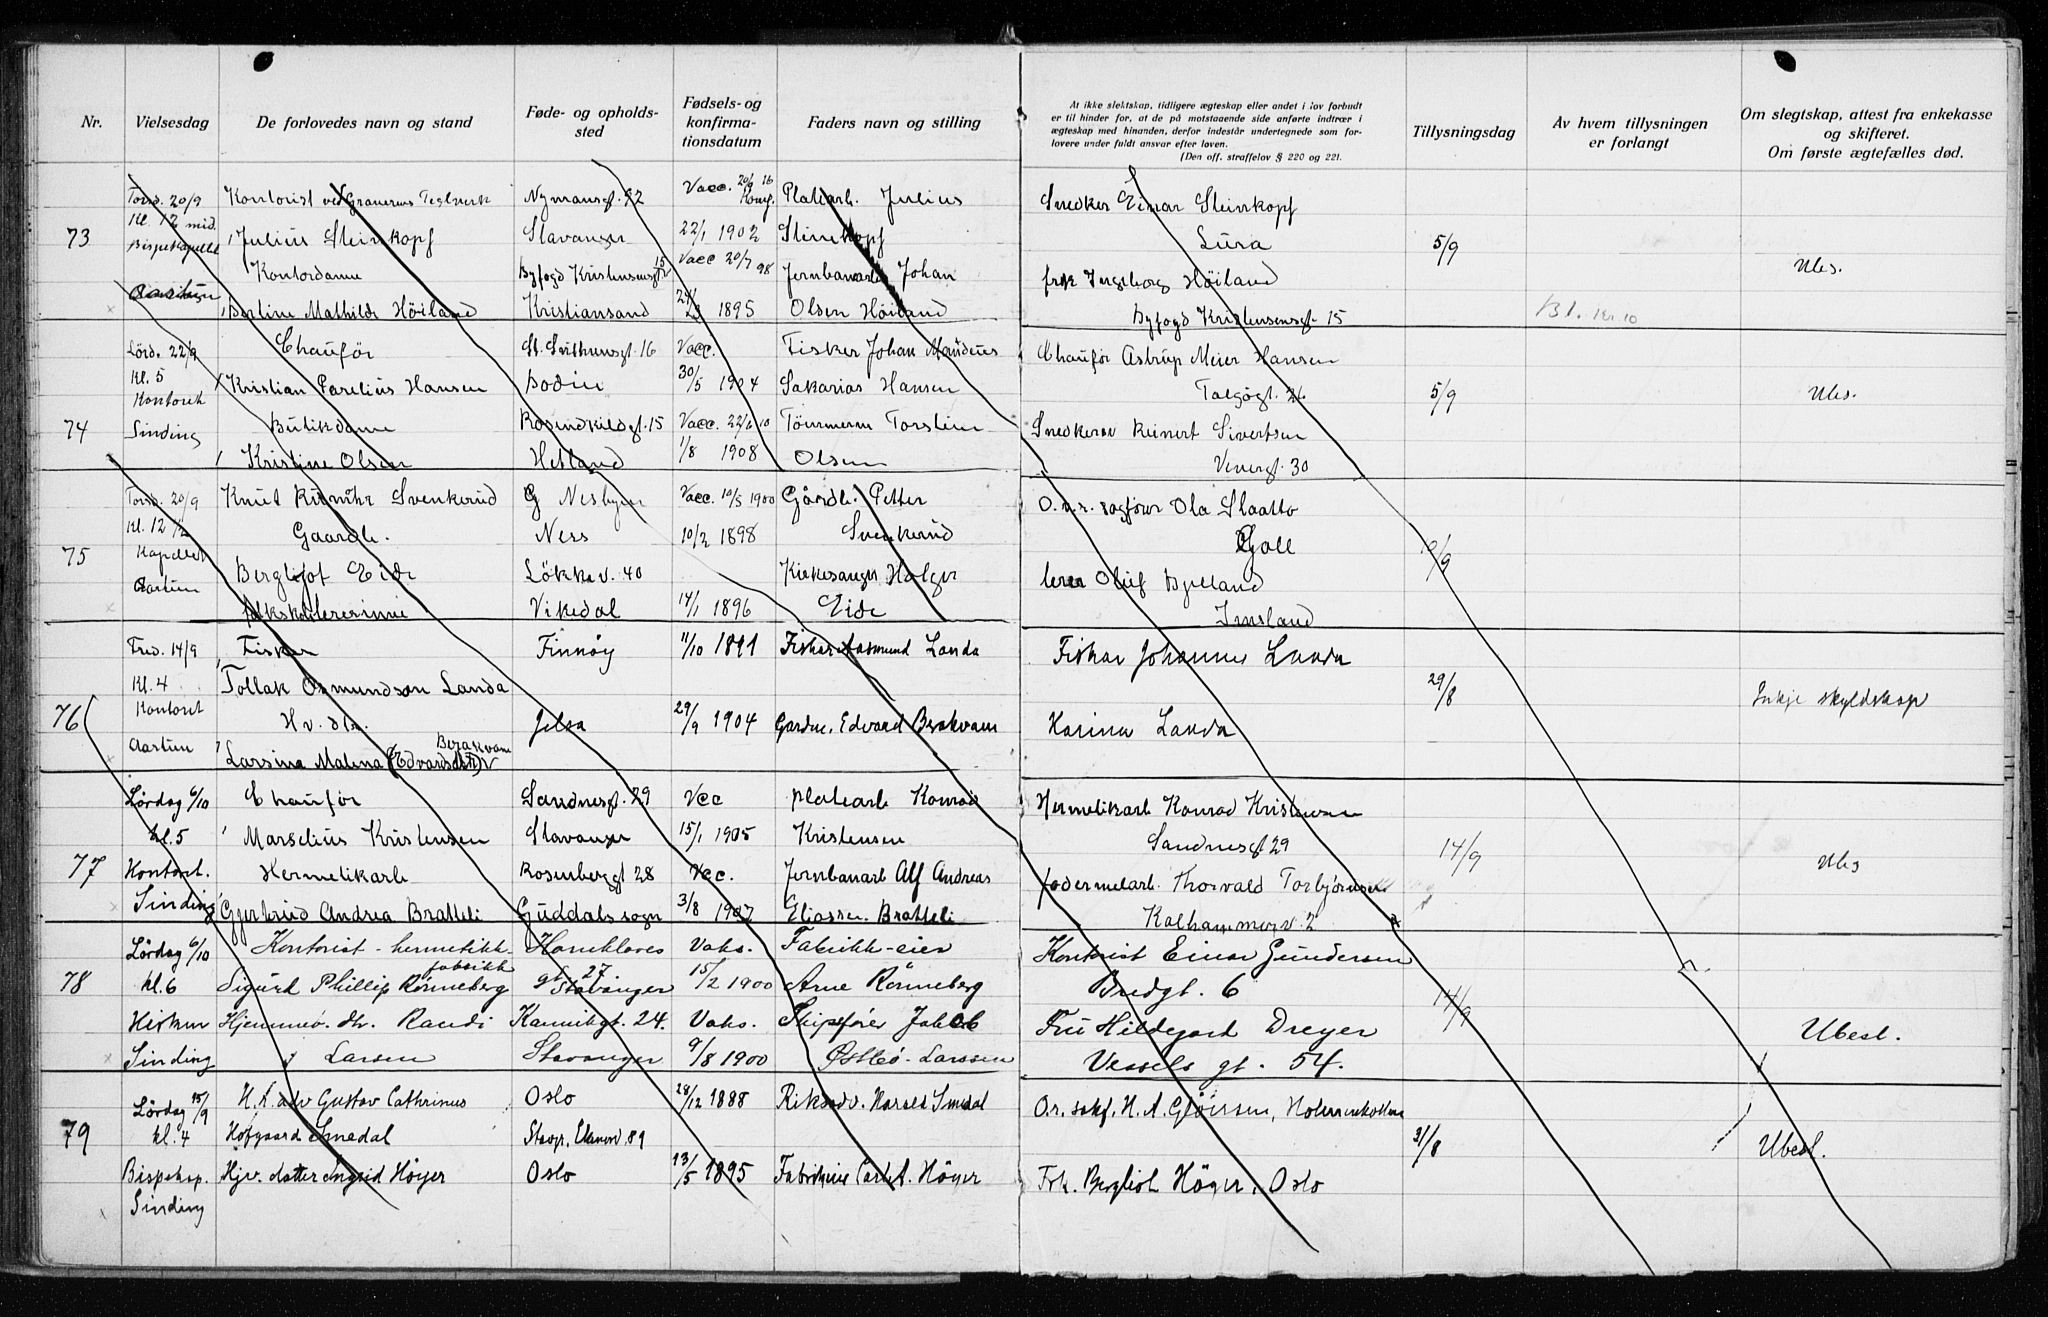 Nr.
Vielsesdag
De forlovedes navn og stand
Føde- og opholds-
sted
Fødsels- og
konfirma-
tionsdatum
Faders navn og stilling
At ikke slektskap, tidligere ægteskap eller andet i lov forbudt
er til hinder for, at de på motstaaende side anførte indtrær i
ægteskap med hinanden, derfor indestår undertegnede som for-
lovere under fuldt ansvar efter loven.
(Den off. straffelov § 220 og 221.
Tillysningsdag
Av hvem tillysningen
er forlangt
Om slegtskap, attest fra enkekasse
og skifteret.
Om første ægtefælles død.
73
Torsd. 20/9
Kl. 12 mid.
Bispekapellet
Kontorist ved Graverens Teglverk
Julius Steinkopf
Kontordame
Bertine Mathilde Høiland
Nymansgt. 22
Stavanger
Byfogd Kristensensgt 15
Kristiansand
Vacc. 20/9 16
Konf.
22/1 1902
Vacc 20/7 98
1895
Platearb. Julius
Steinkopf
Jernbanearb. Johan
Olsen Høiland
Snedker Einar Steinkopf
Lura
frk Ingeborg Høiland
Byfogd Kristensensgt. 15
5/9
Bl. kr. 10
Ubs.
74
Lörd. 22/9
Kl. 5
Kontoret
Sinding
Chauför
Kristian Parelius Hansen
Butikdame
Kristine Olsen
St. Svithunsgt. 16
Bodin
Rosenkildegt. 15
Hetland
Vacc.
30/5 1904
Vacc. 22/6 10
1/8 1908
Fisker Johan Mandeus
Sakarias Hansen
Tömmerm Torstein
Olsen
Chauför Astrup Meier Hansen
Talgögt. 26
Snedkersv Reinert Sivertsen
Verergt. 30
5/9
Ubs.
75
Torsd. 20/9
Kl. 12 1/2
Kapellet
Aartun
Knut Svenkerud
Gaardb.
Bergljot Eide
folkskolelærerinne
G Nesbyen
Ness
Lökkev. 40
Vikedal
Vacc. 10/5 1900
10/2 1898
14/1 1896
Gårdb. Petter
Svenkerud
Kirkesanger Holger
Eide
O.r. sagförer Ola Slaatto
Goll
lærer Oluf Bjelland
Imsland
10/9
76
Fred. 14/9
Kl. 4
Kontoret
Aartun
Fisker
Tollak Osmundson Landa
Hv. dtr.
Berakvam
Larsina Malena (Edvardsdtr)
Finnöy
Jelsa
11/10 1891
29/9 1904
Fiskar Aasmund Landa
Gardm. Edvard Berakvam
Fiskar Johannes Landa
Karina Landa
29/8
Inkje skyldskap
77
Lördag 6/10
kl. 5
Kontoret.
Sinding
Chauför
Marselius Kristensen
Hermetikarb
Gjertrud Andrea Bratteli
Sandnesgt. 29
Stavanger
Rosenberggt 28
Guddals sogn
Vcc
15/1 1905
Vac.
3/8 1907
Platearb Konrad
Kristensen
Jernbanarb Alf Andreas
Eliassen Bratteli
Hermetikarb Konrad Kristensen
Sandnesgt 29
fadermelarb. Thorvald Torbjørnsen
Kalhammerv. 2
14/9
Ubs
78
Lördag 6/10
kl. 6
Hisken
Sinding
Kontorist - hermetikk-
fabrikk
Sigurd Phillip Rönneberg
Hjemmev. dtr. Randi
Larsen
Haneklaves
gt 27.
Stavanger
Kannikgt. 24.
Stavanger
Vaks.
15/2 1900
Vaks.
9/8 1900
Fabrikk-eier
Arne Rönneberg
Skipsförer Jakob
Østbö-Larssen
Kontorist Einar Gundersen
Bredgt. 6
Fru Hildegard Dreyer
Vessels gt. 54.
14/9
Ubesl.
79
Lördag 15/9
kl. 4
Bispekap.
Sinding
H.r. adv Gustav Cathrinus
Hofgaard Smedal
Hjv. datter Ingrid Höyer
Oslo
Stavgr. Eiganesv 89
Oslo
28/12 1888
13/5 1895
Riksadv. Harald Smedal
Fabrikeier Carl A. Höyer
O.r. sakf. H. A. Glöersen, Holmenkollen
Frk. Bergliot Höyer, Oslo
31/8
Ubesl.